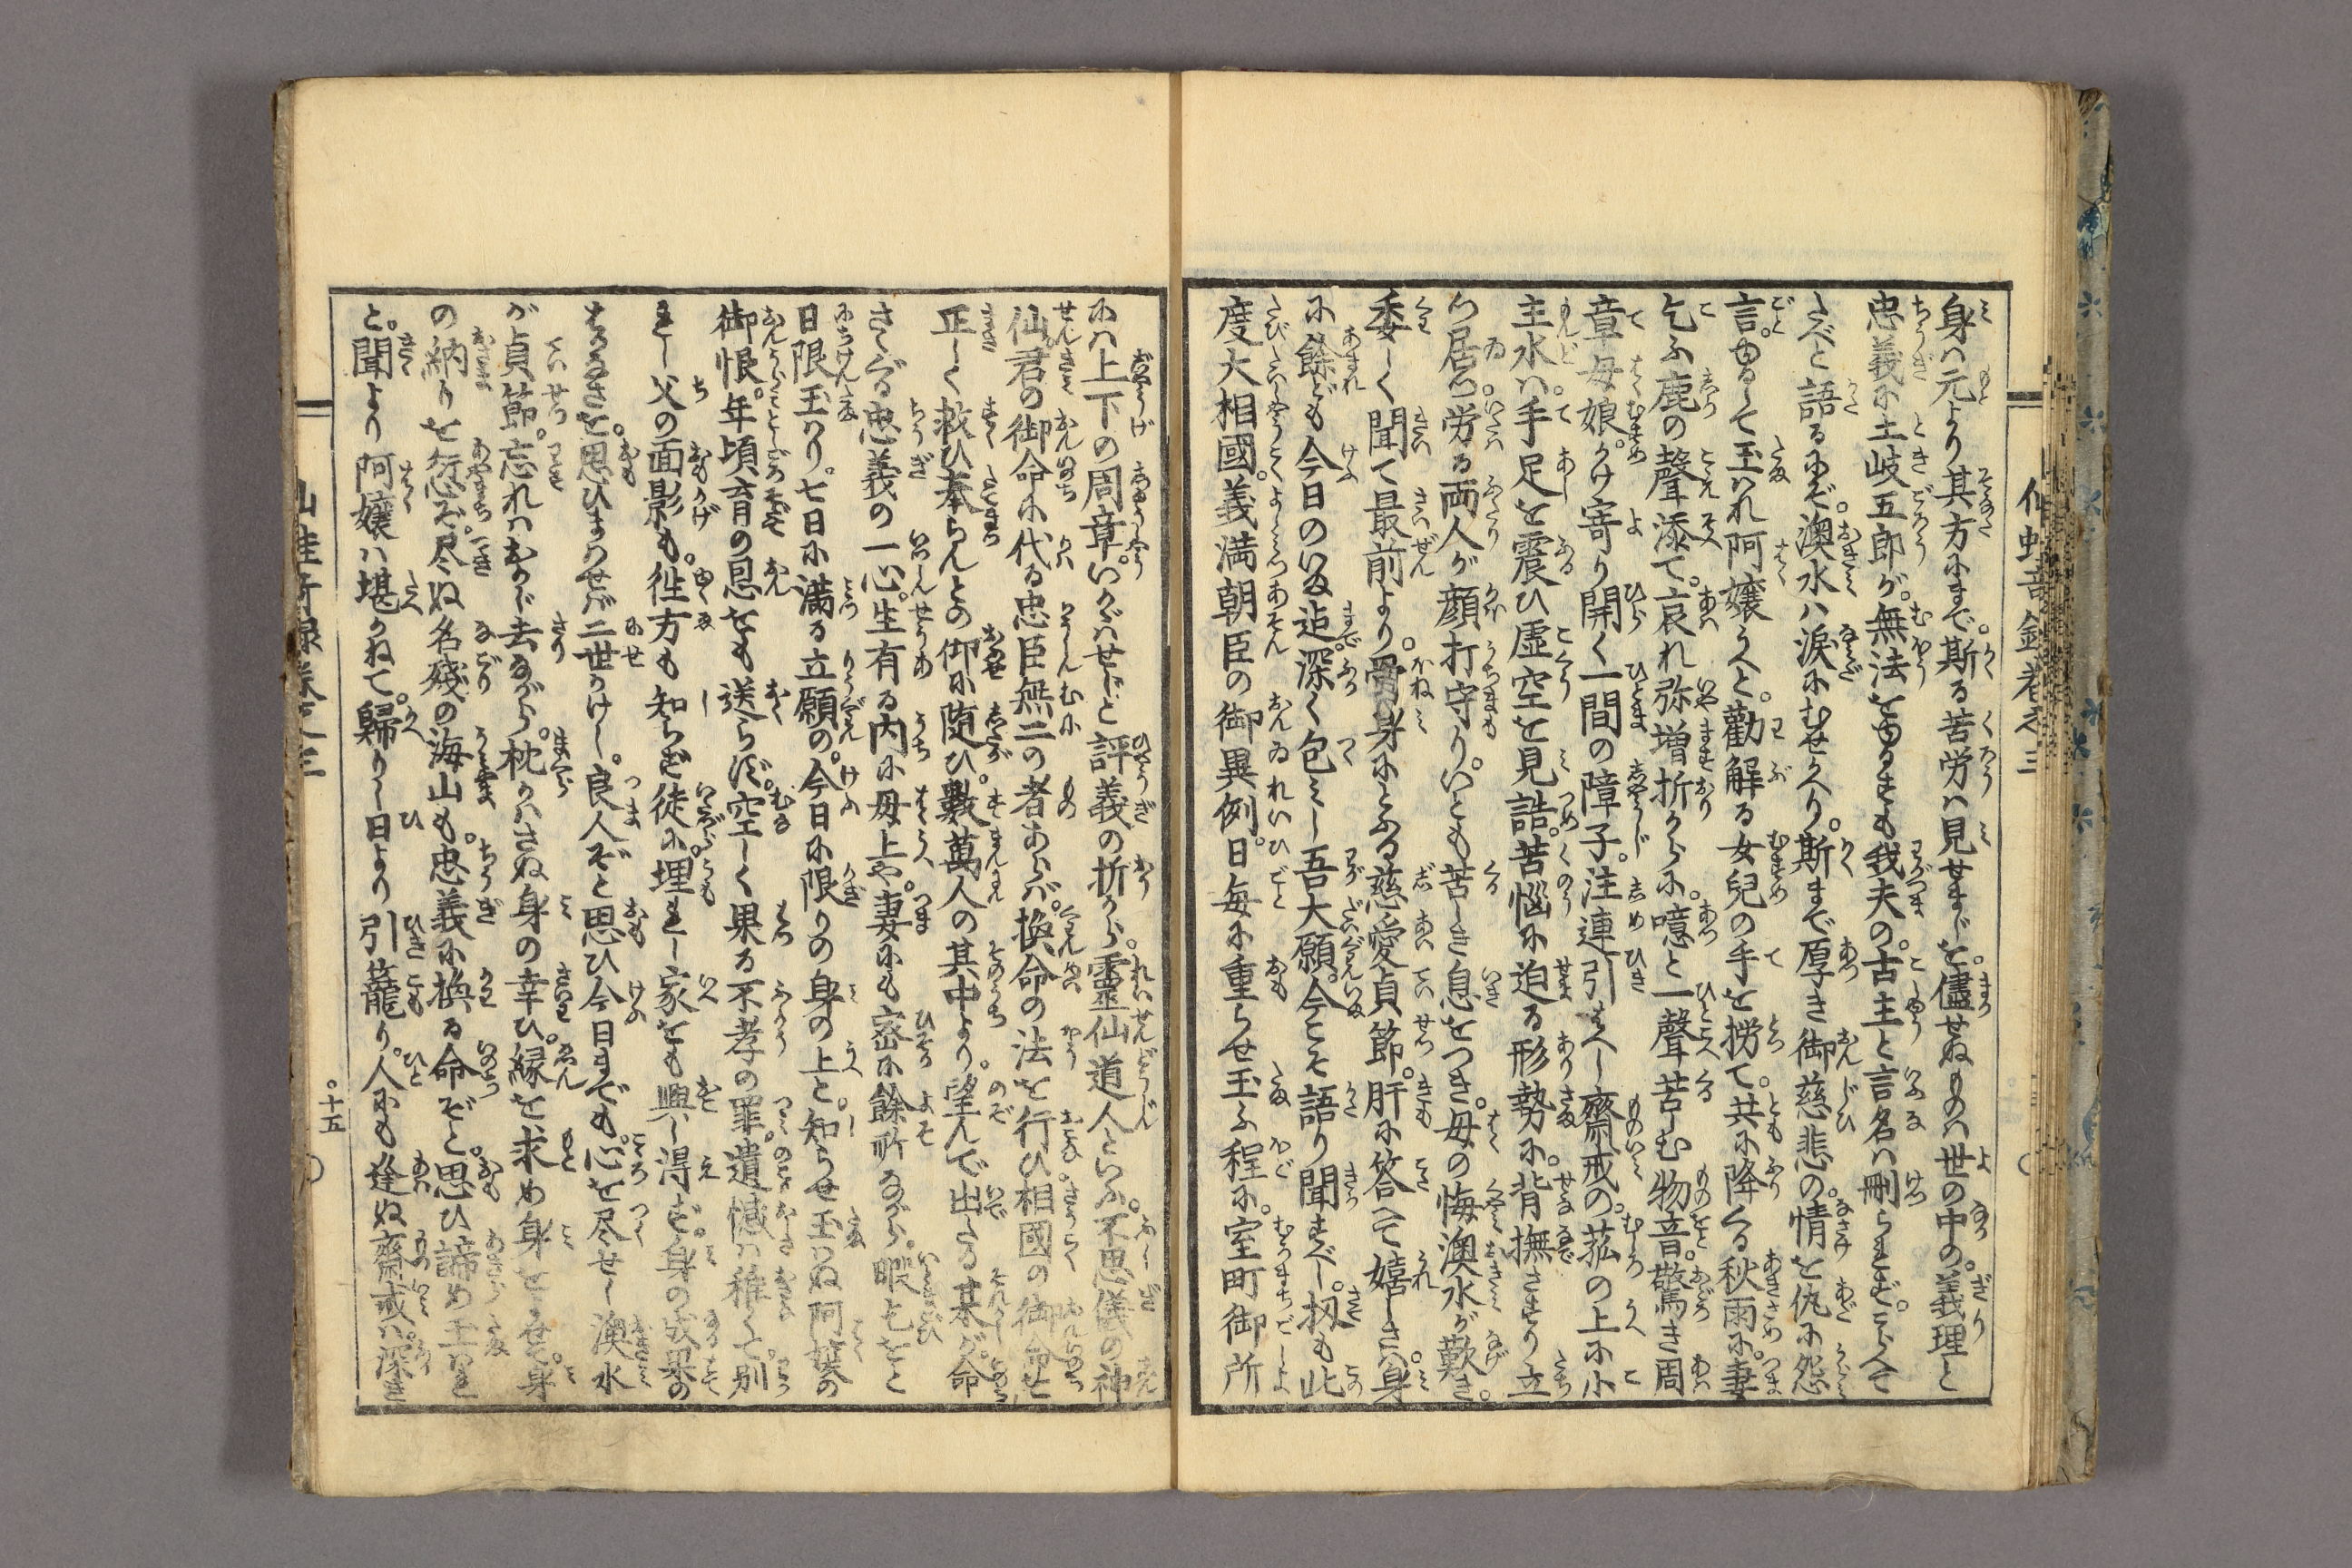 身ハ元より其方にまで。斯る苦労は見せまじを。儘せぬものは世の中の。義理と
忠義に土岐五郎が。無法をゆるすも我夫の。古主と言名は刪られず。こらへて
たべと語るにぞ。澳水ハ涙にむせかへり。斯まで厚き御慈悲の。情を仇に怨
言。ゆるして玉はれ阿嬢うへと。勸解る女兒の手を捞て。共に降くる秋雨に。妻
乞ふ鹿の聲添て。哀れ弥増折からに。噫と一聲苦しむ物音。驚き周
章母娘。かけ寄り開く一間の障子。注連引はへし齋戒の。菰の上に小
主水ハ。手足を震ひ虚空を見詰。苦悩に迫る形勢に。背撫さすり立
つ居つ。労る両人が顔打守り。いとも苦しき息をつき。母の悔澳水が歎き。
委しく聞て最前より。骨身にとふる慈愛貞節。肝に答へて嬉しさハ。身
に餘れども今日のいま迠。深く包みし吾大願。今こそ語り聞すべし。扨も此
度大相國。義満朝臣の御異例。日毎に重らせ玉ふ程に。室町御所
にハ上下の周章。いかゞはせんと評義の折から。靈仙道人といふ。不思儀の神
仙。君の御命に代る忠臣無二の者あらば。換命の法を行ひ。相國の御命せ
正しく救ひ奉らんとの御に随ひ。數萬人の其中より。望んで出たる某が。命
さゝぐる忠義の一心。生有る内に母上や。妻にも密に餘所ながら。暇乞をと
日限玉はり。七日に満る立願の。今日に限りの身の上と。知らせ玉はぬ阿嬢の
御恨。年頃育の恩をも送らず。空しく果る不孝の罪。遺憾は稚くて。別
れし父の面影も。徃方も知らず徒に。埋れし家をも興し得ず。身の成果の
はかなさを。思ひまはせば二世かけし。良人ぞと思ひ今日までも。心を尽せし澳水
が貞節。忘れはおかじ去ながら。枕かはさぬ身の幸ひ。縁を求め身をよせて。身
の納りを愆ぞ。尽ぬ名殘の海山も。忠義に換る命ぞと。思ひ諦め玉はれ
と。聞より阿嬢ハ堪かねて。歸りし日より引籠り。人にも逢ぬ齋戒は。深き
十五